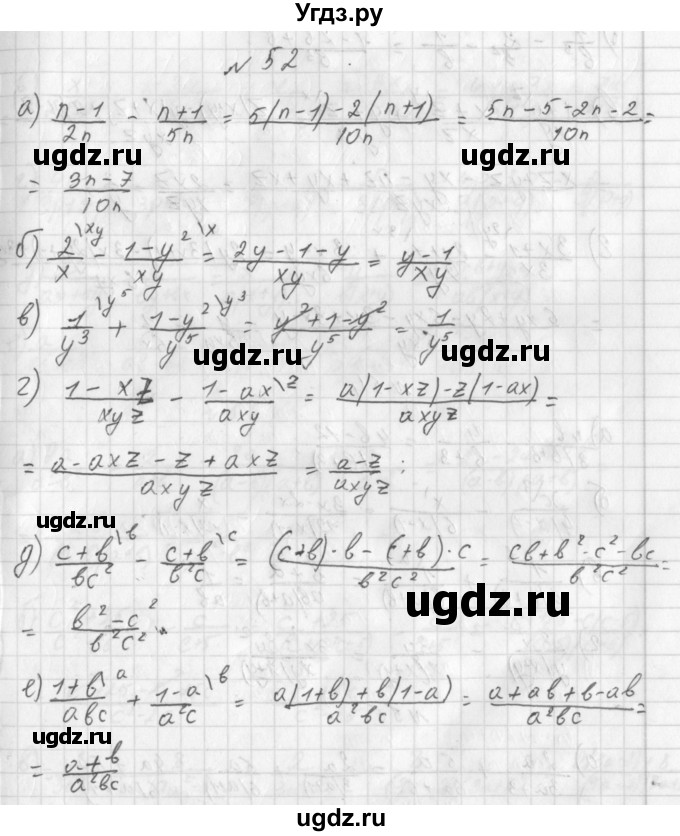 Угдз.ру
№ 52
а) (n-1)/(2n) - (n+1)/(5n) = (5(n-1)-2(n+1))/(10n) = (5n-5-2n-2)/(10n) =
ugdz.ru ugdz.ru
= (3n-7)/(10n)
б) 2/x \xy - (1-y²)/(xy) \x = (2y-1-y)/(xy) = (y-1)/(xy)
ugdz.ru
в) 1/y³ \y⁵ + (1-y²)/y⁵ \y³ = (y²+1-y²)/y⁵ = 1/y⁵
ugdz.ru
г) (1-xz)/(xyz) - (1-ax)/(axy) \z = (a(1-xz)-z(1-ax))/(axyz) =
= (a-axz-z+axz)/(axyz) = (a-z)/(axyz) ;
ugdz.ru
д) (c+b)/(bc²) \b - (c+b)/(b²c) \c = ((c+b)·b-(c+b)·c)/(b²c²) = (cb+b²-c²-bc)/(b²c²) =
ugdz.ru
= (b²-c²)/(b²c²)
е) (1+b)/(abc) \a + (1-a)/(a²c) \b = (a(1+b)+b(1-a))/(a²bc) = (a+ab+b-ab)/(a²bc) =
ugdz.ru
= (a+b)/(a²bc)
ugdz.ru ugdz.ru